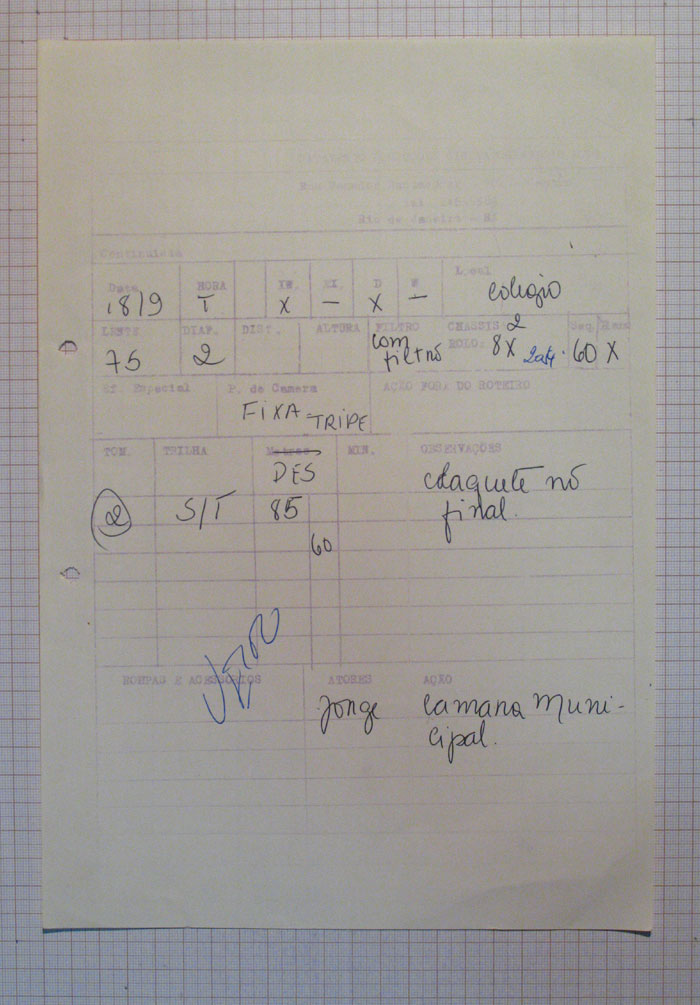 Rio de Janeiro - RJ
Continuidade
Data HORA IN. EX. D N Local
18/9 T X — X — colégio
LENTE DIAF. DIST. ALTURA FILTRO CHASSIS 2 Seq.
75 2 com filtro ROLO: 8X 60 X
Ef. Especial P. de Camera AÇÃO FORA DO ROTEIRO
FIXA - TRIPE
TOM. TRILHA Metros MIN. OBSERVAÇÕES
DES claquete no
2 S/T 85 final.
60
ROUPAS E ACESSÓRIOS ATORES AÇÃO
Jorge Camara Muni-
cipal.